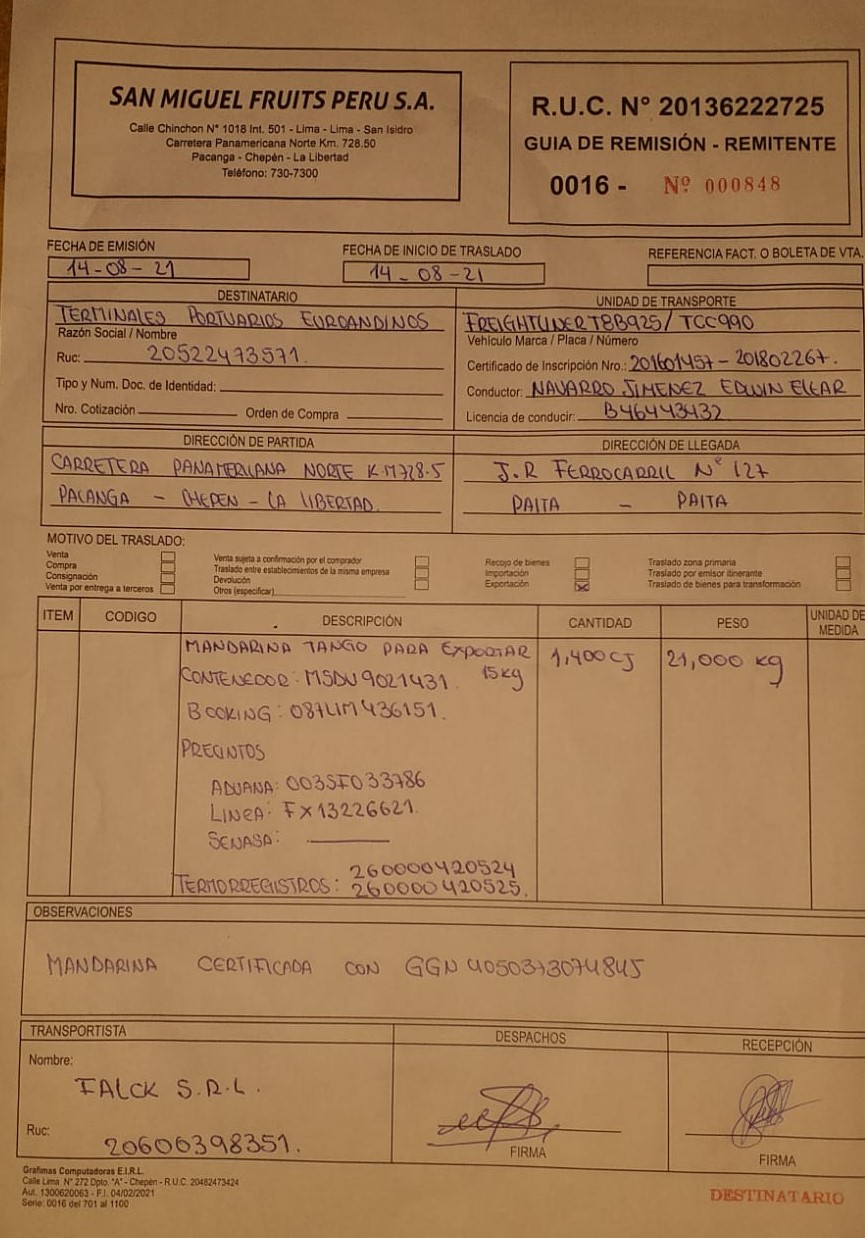 SAN MIGUEL FRUITS PERU S.A.
Calle Chinchon N° 1018 Int. 501 - Lima - Lima - San Isidro
Carretera Panamericana Norte Km. 728.50
Pacanga - Chepén - La Libertad
Teléfono: 730-7300
R.U.C. N° 20136222725
GUIA DE REMISIÓN - REMITENTE
0016 - Nº 000848
FECHA DE EMISIÓN
14-08-21
FECHA DE INICIO DE TRASLADO
14-08-21
REFERENCIA FACT. O BOLETA DE VTA.
DESTINATARIO
TERMINALES PORTUARIOS EUROANDINOS
Razón Social / Nombre
Ruc: 20522473571.
Tipo y Num. Doc. de Identidad:
Nro. Cotización Orden de Compra
UNIDAD DE TRANSPORTE
FREIGHTLINER T8B925/TCC990
Vehículo Marca / Placa / Número
Certificado de Inscripción Nro.: 201601457-201802267.
Conductor: NAVARRO JIMENEZ EDWIN
Licencia de conducir: B46443432
DIRECCIÓN DE PARTIDA
CARRETERA PANAMERICANA NORTE KM728.5
PACANGA - CHEPEN - LA LIBERTAD.
DIRECCIÓN DE LLEGADA
J.R FERROCARRIL N° 127
PAITA - PAITA
MOTIVO DEL TRASLADO:
Venta
Compra
Consignación
Venta por entrega a terceros
Venta sujeta a confirmación por el comprador
Traslado entre establecimientos de la misma empresa
Devolución
Otros (especificar)
Recojo de bienes
Importación
Exportación
Traslado zona primaria
Traslado por emisor itinerante
Traslado de bienes para transformación
ITEM CODIGO DESCRIPCIÓN CANTIDAD PESO UNIDAD DE MEDIDA
MANDARINA TANGO PARA EXPORTAR 1,400CJ 21,000 kg
CONTENEDOR: MSDU9021431. 15kg
BOOKING: 087LIM436151.
PRECINTOS
ADUANA: 003SF033786
LINEA: FX13226621.
SENASA:
TERMORREGISTROS: 260000420524
260000420525.
OBSERVACIONES
MANDARINA CERTIFICADA CON GGN 4050373074845
TRANSPORTISTA
Nombre:
FALCK S.R.L.
Ruc:
20606398351.
DESPACHOS
FIRMA
RECEPCIÓN
FIRMA
Grafimas Computadoras E.I.R.L.
Calle Lima N° 272 Dpto. "A" - Chepén - R.U.C. 20482473424
Aut. 1300620063 - F.I. 04/02/2021
Serie: 0016 del 701 al 1100
DESTINATARIO